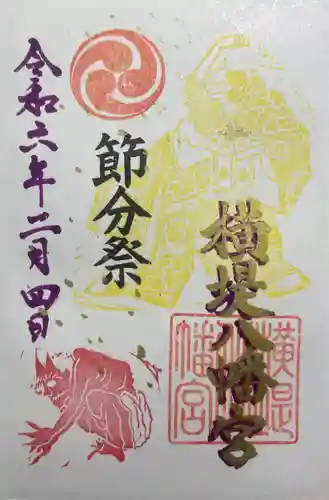 横堤八幡宮
節分祭
令和六年二月四日
横堤八幡宮